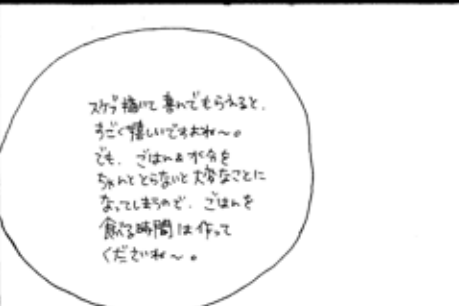 スケブ描いて喜んでもらえると、
すごく嬉しいですよね〜。
でも、ごはん&水分を
ちゃんととらないと大変なことに
なってしまうので、ごはんを
食べる時間は作って
くださいね〜。